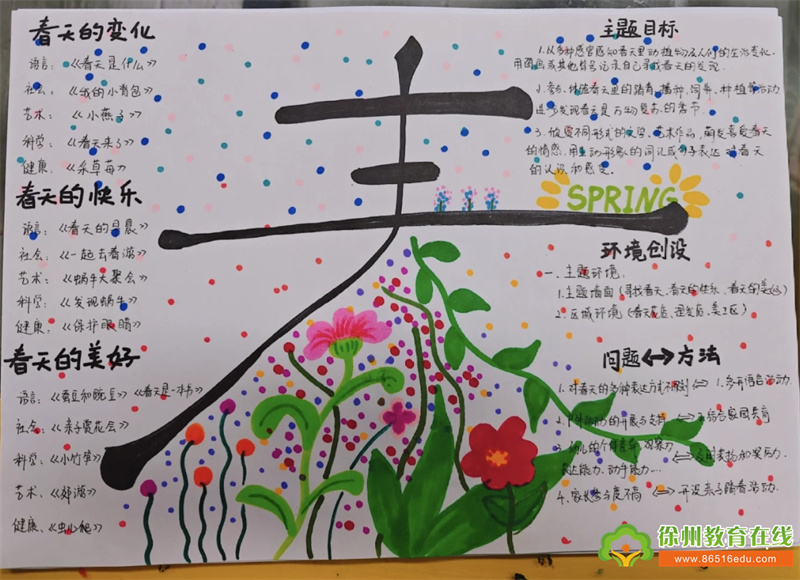 春天的变化
语言：《春天是什么》
社会：《我的小背包》
艺术：《小燕子》
科学：《春天来了》
健康：《采草莓》
春天的快乐
语言：《春天的早晨》
社会：《一起去春游》
艺术：《蜗牛大聚会》
科学：《发现蜗牛》
健康：《保护眼睛》
春天的美好
语言：《蚕豆和豌豆》《春天是一本书》
社会：《亲子赏花会》
科学：《小竹笋》
艺术：《郊游》
健康：《虫儿爬》
SPRING
主题目标
1.从多种感官感知春天里动植物及人们的生活变化，
用图画或其他符号记录自己寻找春天的发现。
2.参与、体验春天里的踏青、播种、饲养、种植等活动
进一步发现春天是万物复苏的季节。
3.欣赏不同形式的文学、艺术作品，萌发喜爱春天
的情感，用生动形象的词汇或句子表达对春天
的认识和感受。
环境创设
一、主题环境：
1.主题墙面（寻找春天、春天的快乐、春天的美好）
2.区域环境（春天花店、理发店、美工区）
问题⟷方法
1.对春天的多种表达方式不同 ⇔ 1.多开语言活动.
的开展与支持 ⇔ 结合家园共育
3.幼儿的个体差异，观察力
表达能力、动手能力... ⇔
4.家长参与度不高 ⇔ 开设亲子踏春活动.
徐州教育在线
www.86516edu.com